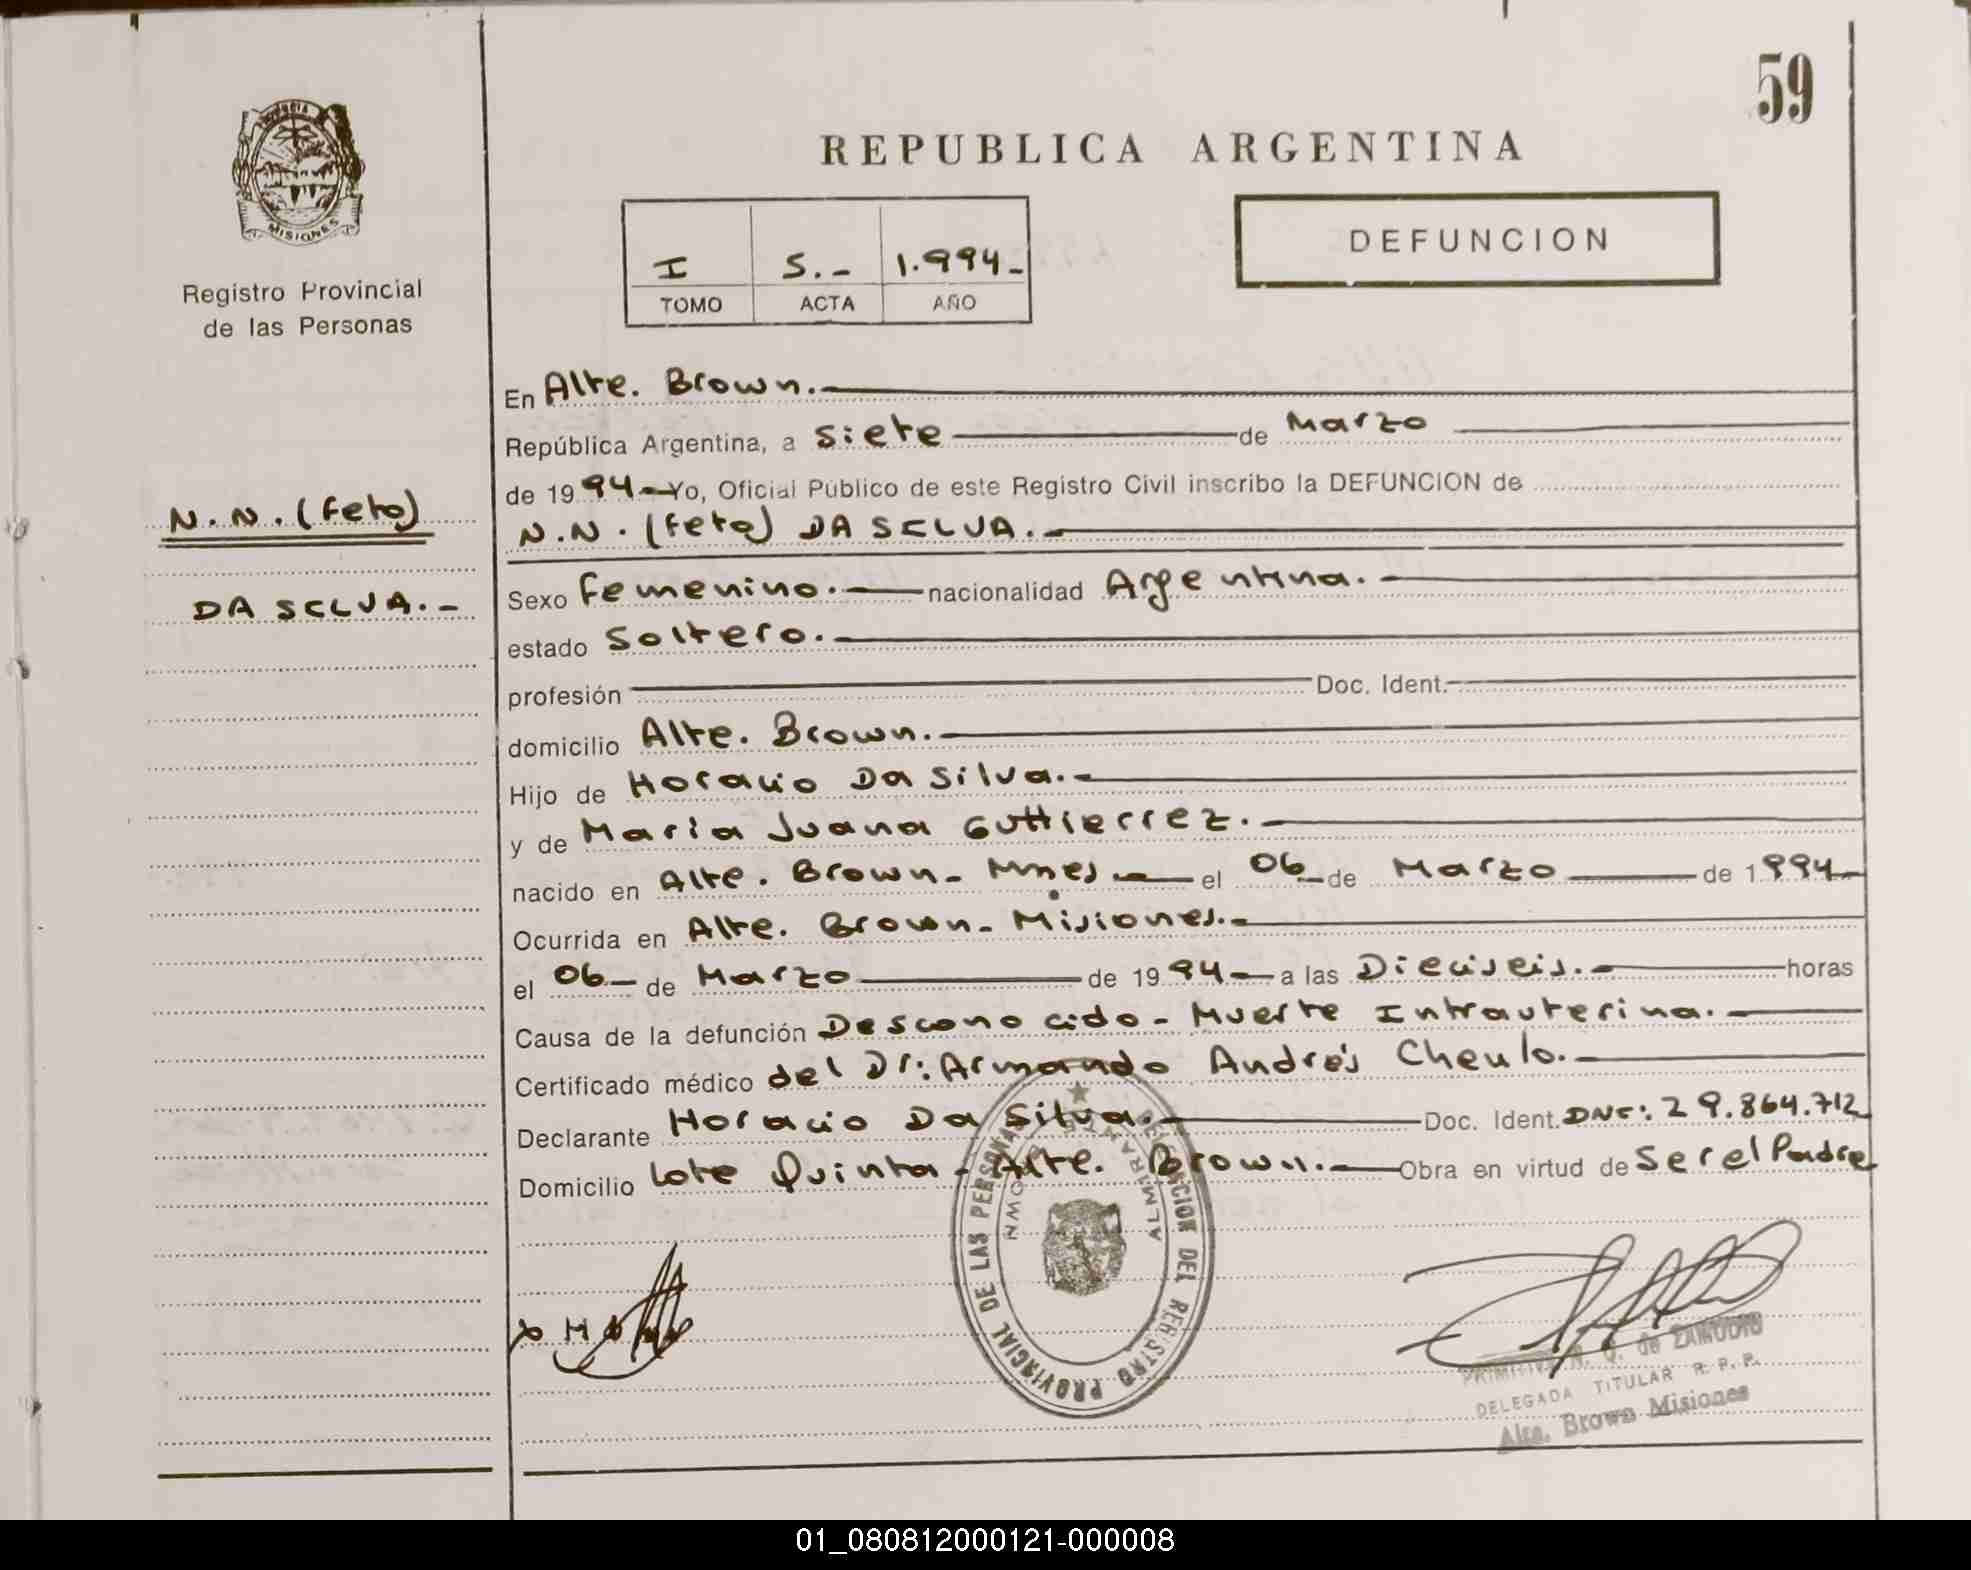 59
REPUBLICA ARGENTINA
MISIONES
Registro Provincial
de las Personas
I S.- 1.994-
TOMO ACTA AÑO
DEFUNCION
N.N. (Feto)
DA SELVA.-
En Alte. Brown.-
República Argentina, a siete de Marzo
de 1994- Yo, Oficial Público de este Registro Civil inscribo la DEFUNCION de
N.N. (Feto) DA SELVA.-
Sexo Femenino.- nacionalidad Argentina.-
estado Soltero.-
profesión Doc. Ident.
domicilio Alte. Brown.-
Hijo de Horacio Da Silva.-
y de Maria Juana Guttierrez.-
nacido en Alte. Brown- Mnes- el 06- de Marzo de 1994-
Ocurrida en Alte. Brown- Misiones.-
el 06- de Marzo de 1994- a las Dieciseis.- horas
Causa de la defunción Desconocido- Muerte Intrauterina.-
Certificado médico del Dr: Armando Andrés Cheulo.-
Declarante Horacio Da Silva.- Doc. Ident. DNI: 29.864.712
Domicilio Lote Quinta- Alte. Brown.- Obra en virtud de Ser el Padre
DEL REGISTRO PROVINCIAL DE LAS PERSONAS
ALMIRANTE BROWN
N. Q. de ZAMUDIO
DELEGADA TITULAR R. P. P.
Alte. Brown Misiones
01_080812000121-000008